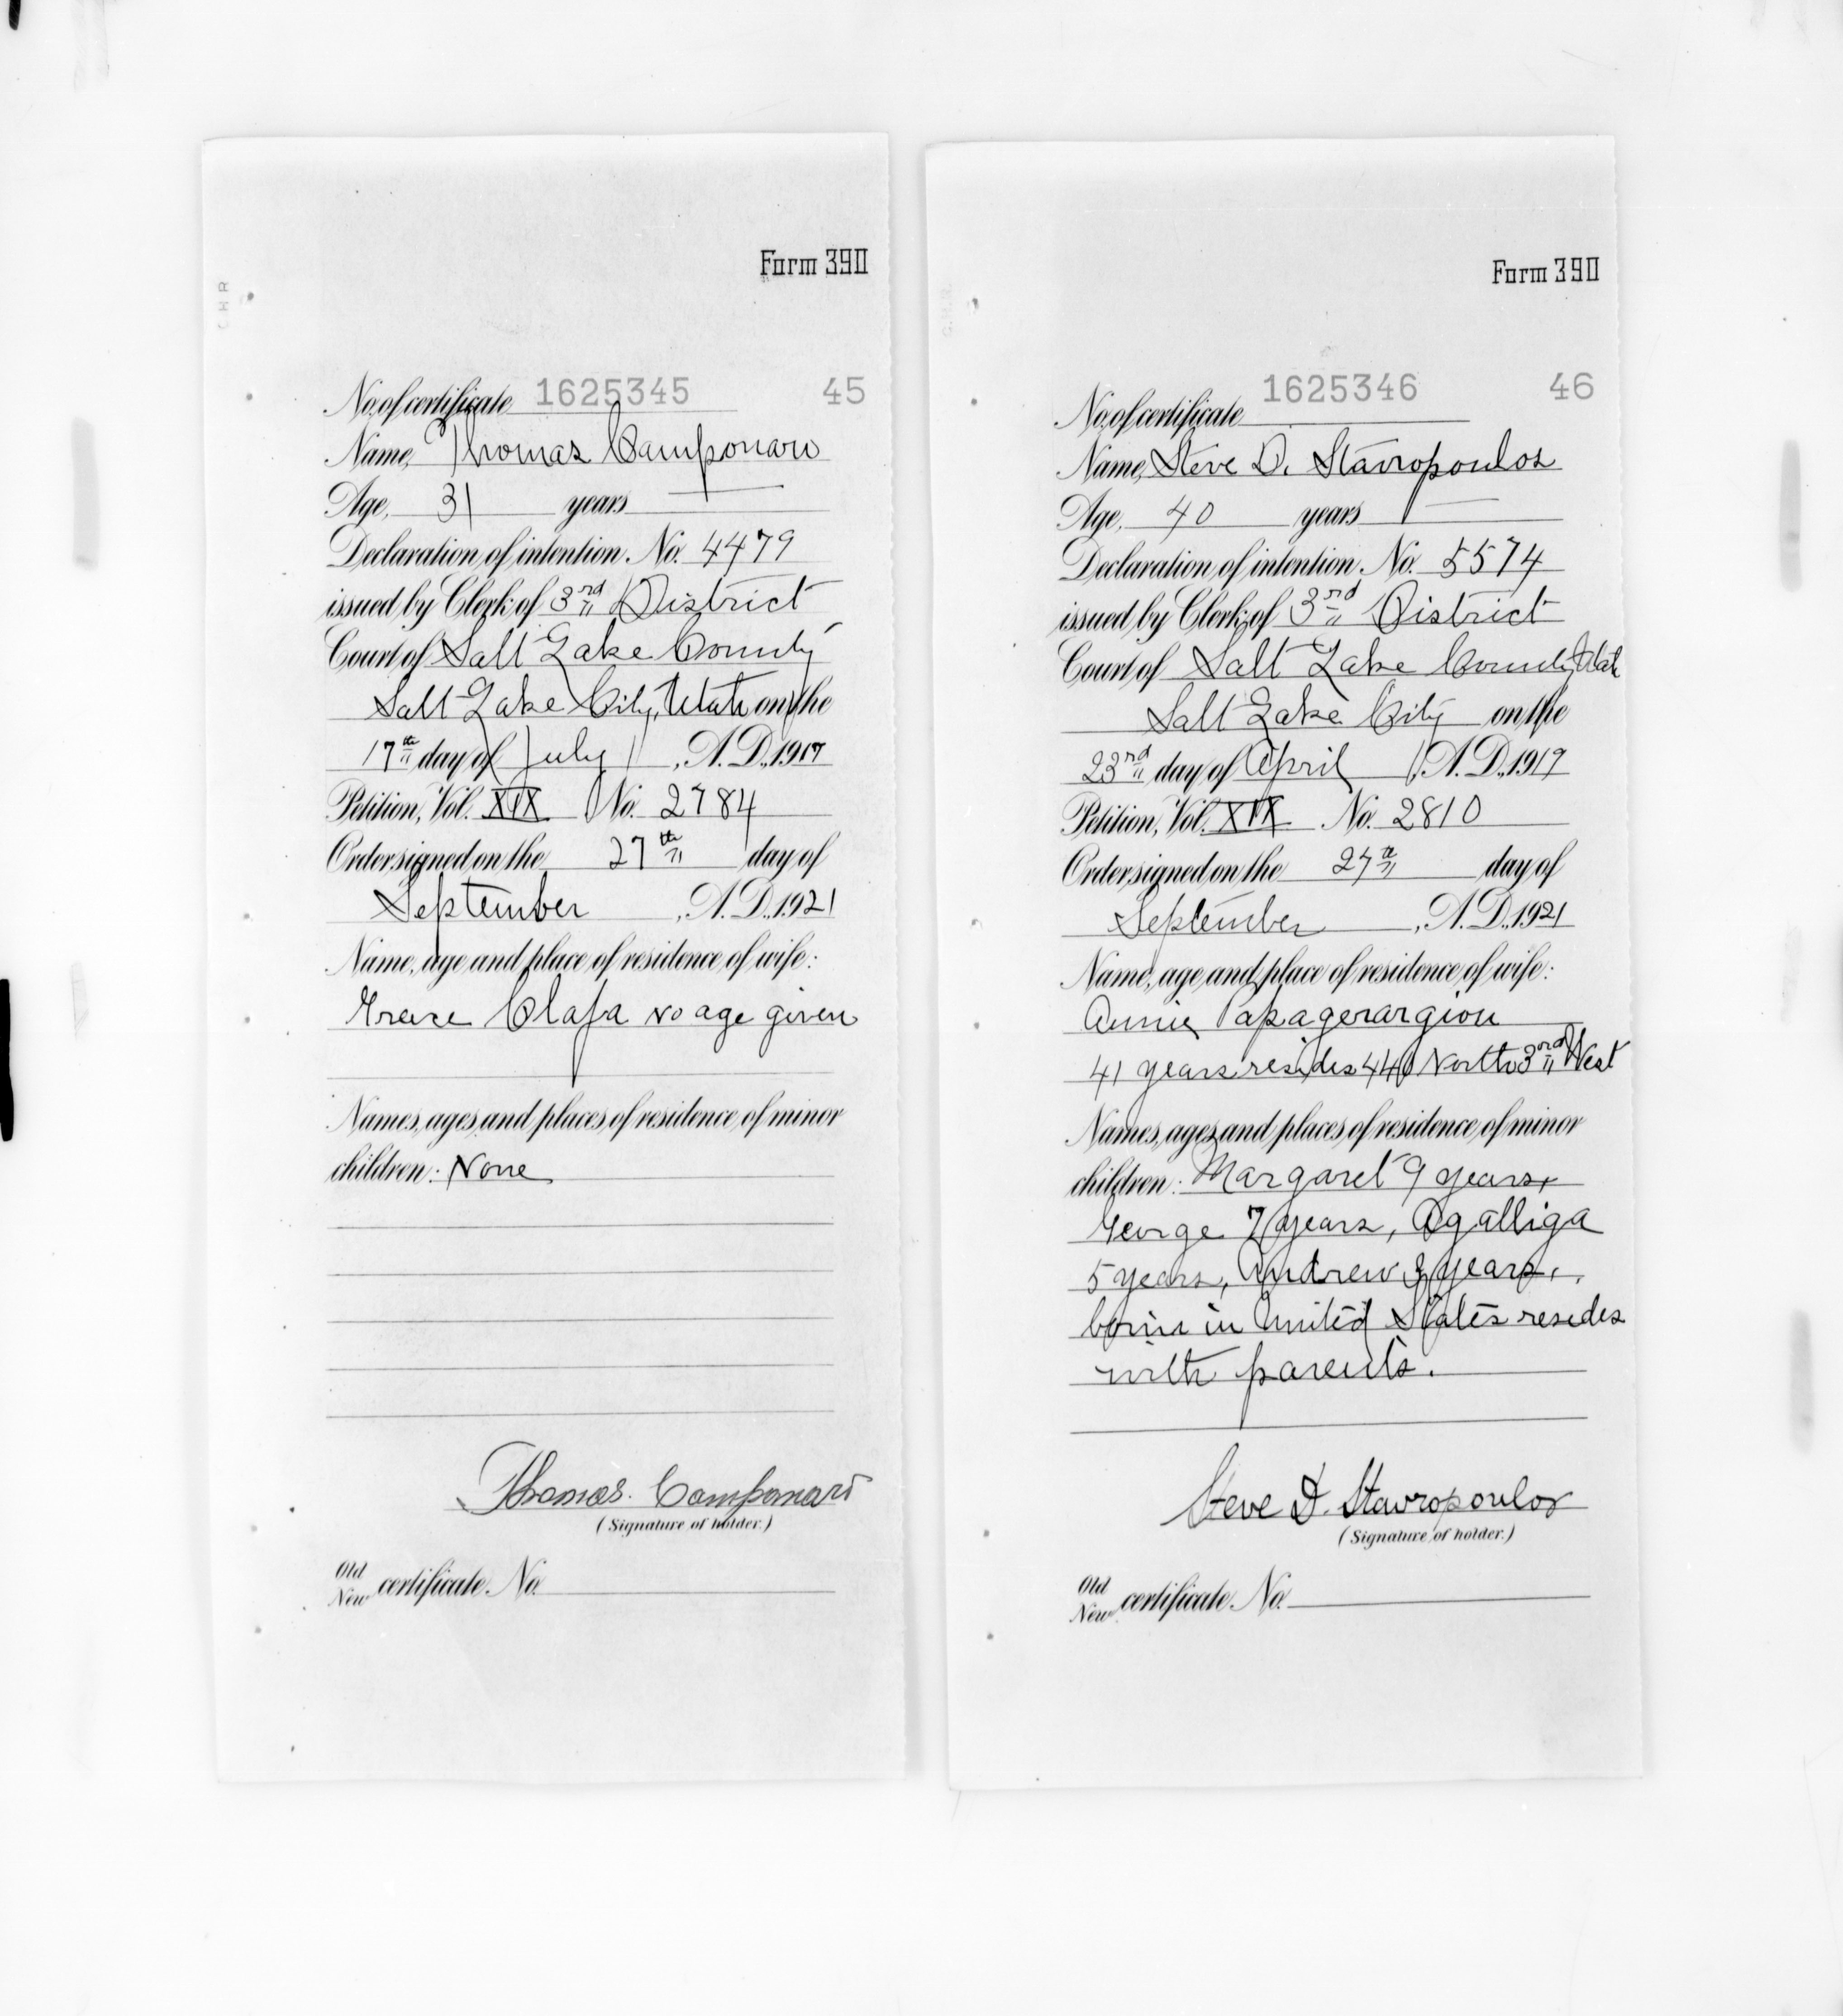 Form 390
No. of certificate 1625345 45
Name, Thomas Camponaro
Age, 31 years
Declaration of intention No. 4479
issued by Clerk of 3rd District
Court of Salt Lake County
Salt Lake City, Utah on the
17th day of July, A.D. 1917
Petition, Vol. XIX No. 2784
Order signed on the 27th day of
September, A.D. 1921
Name, age and place of residence of wife:
Grace no age given
Names, ages and places of residence of minor
children: None
Thomas Camponaro
(Signature of holder.)
Old
New certificate No.
Form 390
No. of certificate 1625346 46
Name, Steve D. Stavropoulos
Age, 40 years
Declaration of intention No. 5574
issued by Clerk of 3rd District
Court of Salt Lake County Utah
Salt Lake City on the
23rd day of April, A.D. 1917
Petition, Vol. XIX No. 2810
Order signed on the 27th day of
September, A.D. 1921
Name, age and place of residence of wife:
Annie Papagerargiou
41 years resides 440 North 3rd West
Names, ages and places of residence of minor
children: Margaret 9 years,
George 7 years, Agalliga
5 years, Andrew 3 years,
born in United States resides
with parents.
Steve D. Stavropoulos
(Signature of holder.)
Old
New certificate No.